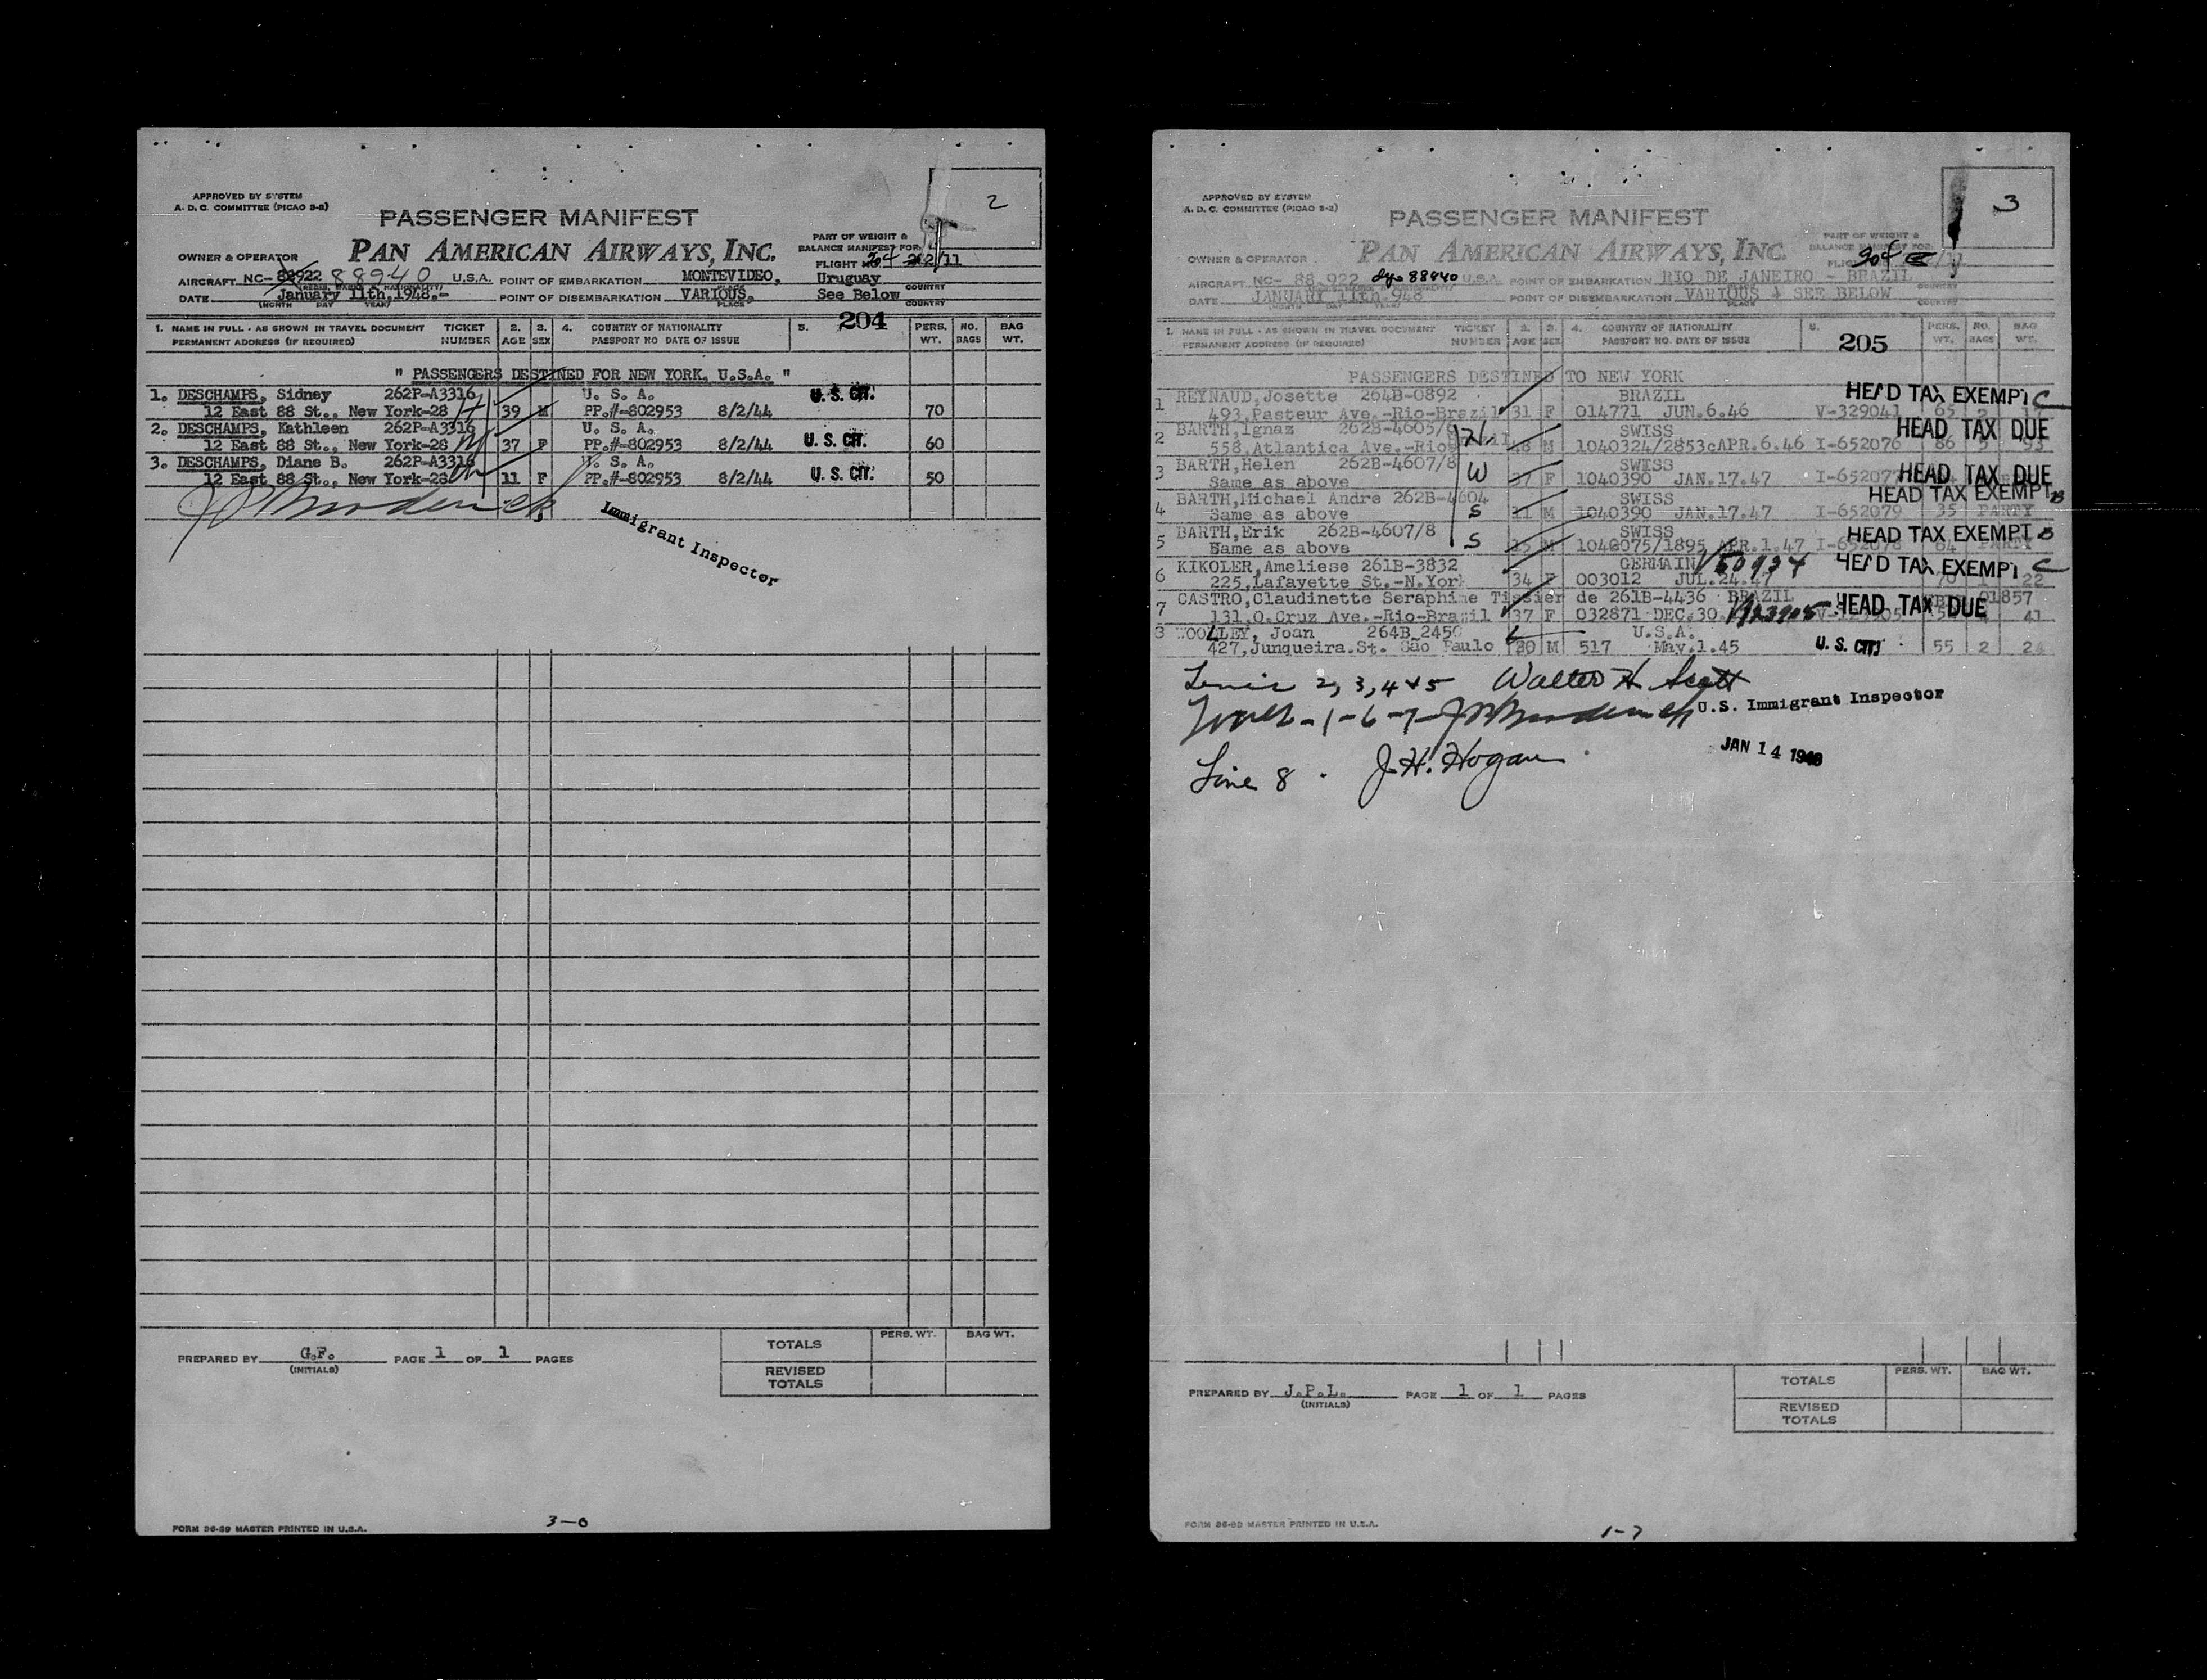 APPROVED BY SYSTEM
A. D. C. COMMITTEE (PICAO 3-2)
2
PASSENGER MANIFEST
PAN AMERICAN AIRWAYS, INC.
PART OF WEIGHT &
BALANCE MANIFEST FOR:
OWNER & OPERATOR
FLIGHT 204 262/11
AIRCRAFT NC- 88922 88940 U.S.A. POINT OF EMBARKATION MONTEVIDEO, Uruguay
DATE January 11th, 1948.- POINT OF DISEMBARKATION VARIOUS, See Below
(MONTH DAY YEAR) PLACE COUNTRY
204
1. NAME IN FULL - AS SHOWN IN TRAVEL DOCUMENT TICKET 2. 3. 4. COUNTRY OF NATIONALITY 5. PERS. NO. BAG
PERMANENT ADDRESS (IF REQUIRED) NUMBER AGE SEX PASSPORT NO DATE OF ISSUE WT. BAGS WT.
" PASSENGERS DESTINED FOR NEW YORK, U.S.A. "
1. DESCHAMPS, Sidney 262P-A3316 U. S. A. U. S. CIT.
12 East 88 St., New York-28 39 M PP.#-802953 8/2/44 70
2. DESCHAMPS, Kathleen 262P-A3316 U. S. A.
12 East 88 St., New York-28 37 F PP.#-802953 8/2/44 U. S. CIT. 60
3. DESCHAMPS, Diane B. 262P-A3316 U. S. A.
12 East 88 St., New York-28 11 F PP.#-802953 8/2/44 U. S. CIT. 50
Immigrant Inspector
PREPARED BY G.F. PAGE 1 OF 1 PAGES
(INITIALS)
PERS. WT. BAG WT.
TOTALS
REVISED
TOTALS
3-0
FORM 26-59 MASTER PRINTED IN U.S.A.
APPROVED BY SYSTEM
A. D. C. COMMITTEE (PICAO 3-2)
3
PASSENGER MANIFEST
PAN AMERICAN AIRWAYS, INC.
PART OF WEIGHT &
BALANCE MANIFEST FOR:
OWNER & OPERATOR
204
AIRCRAFT NC- 88.922 88940 U.S.A. POINT OF EMBARKATION RIO DE JANEIRO - BRAZIL
DATE JANUARY 11th 948 POINT OF DISEMBARKATION VARIOUS + SEE BELOW
PLACE COUNTRY
205
1. NAME IN FULL - AS SHOWN IN TRAVEL DOCUMENT TICKET 2. 3. 4. COUNTRY OF NATIONALITY 5. PERS. NO. BAG
PERMANENT ADDRESS (IF REQUIRED) NUMBER AGE SEX PASSPORT NO. DATE OF ISSUE WT. BAGS WT.
PASSENGERS DESTINED TO NEW YORK
1 REYNAUD, Josette 264B-0892 BRAZIL HEAD TAX EXEMPT C
493, Pasteur Ave.-Rio-Brazil 31 F 014771 JUN.6.46 V-329041 65 2
2 BARTH, Ignaz 262B-4605/6 H SWISS HEAD TAX DUE
558, Atlantica Ave.-Rio 48 M 1040324/2853cAPR.6.46 I-652076 86 5 93
3 BARTH, Helen 262B-4607/8 W SWISS HEAD TAX DUE
Same as above 37 F 1040390 JAN.17.47 I-652077
4 BARTH, Michael Andre 262B-4604 S SWISS HEAD TAX EXEMPT B
Same as above 11 M 1040390 JAN.17.47 I-652079 35 PARTY
5 BARTH, Erik 262B-4607/8 S SWISS HEAD TAX EXEMPT B
Same as above 15 M 1040075/1895 APR.1.47 I-652078 64 PARTY
6 KIKOLER, Ameliese 261B-3832 GERMAIN V50934 HEAD TAX EXEMPT C
225, Lafayette St.-N.York 34 F 003012 JUL.24.47 22
7 CASTRO, Claudinette Seraphine Tissier de 261B-4436 BRAZIL 01857
131, O.Cruz Ave.-Rio-Brazil 37 F 032871 DEC.30. V123905 HEAD TAX DUE 41
8 WOOLLEY, Joan 264B 2450 U.S.A.
427, Junqueira.St. Sao Paulo 20 M 517 May.1.45 U. S. CIT. 55 2
Lines 2, 3, 4 + 5 Walter H Scott
U.S. Immigrant Inspector
Lines -1-6-7-
JAN 14 1948
Line 8 . J. H. Hogan
PREPARED BY J.P.L. PAGE 1 OF 1 PAGES
(INITIALS)
PERS. WT. BAG WT.
TOTALS
REVISED
TOTALS
FORM 26-59 MASTER PRINTED IN U.S.A.
1-7